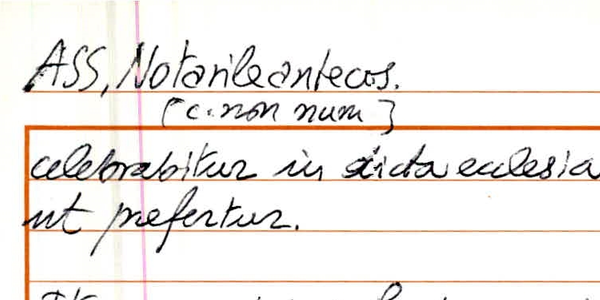 ASS, Notarile antecos.
[c. non num]
celebrabitur in dicta ecclesia
ut prefertur.